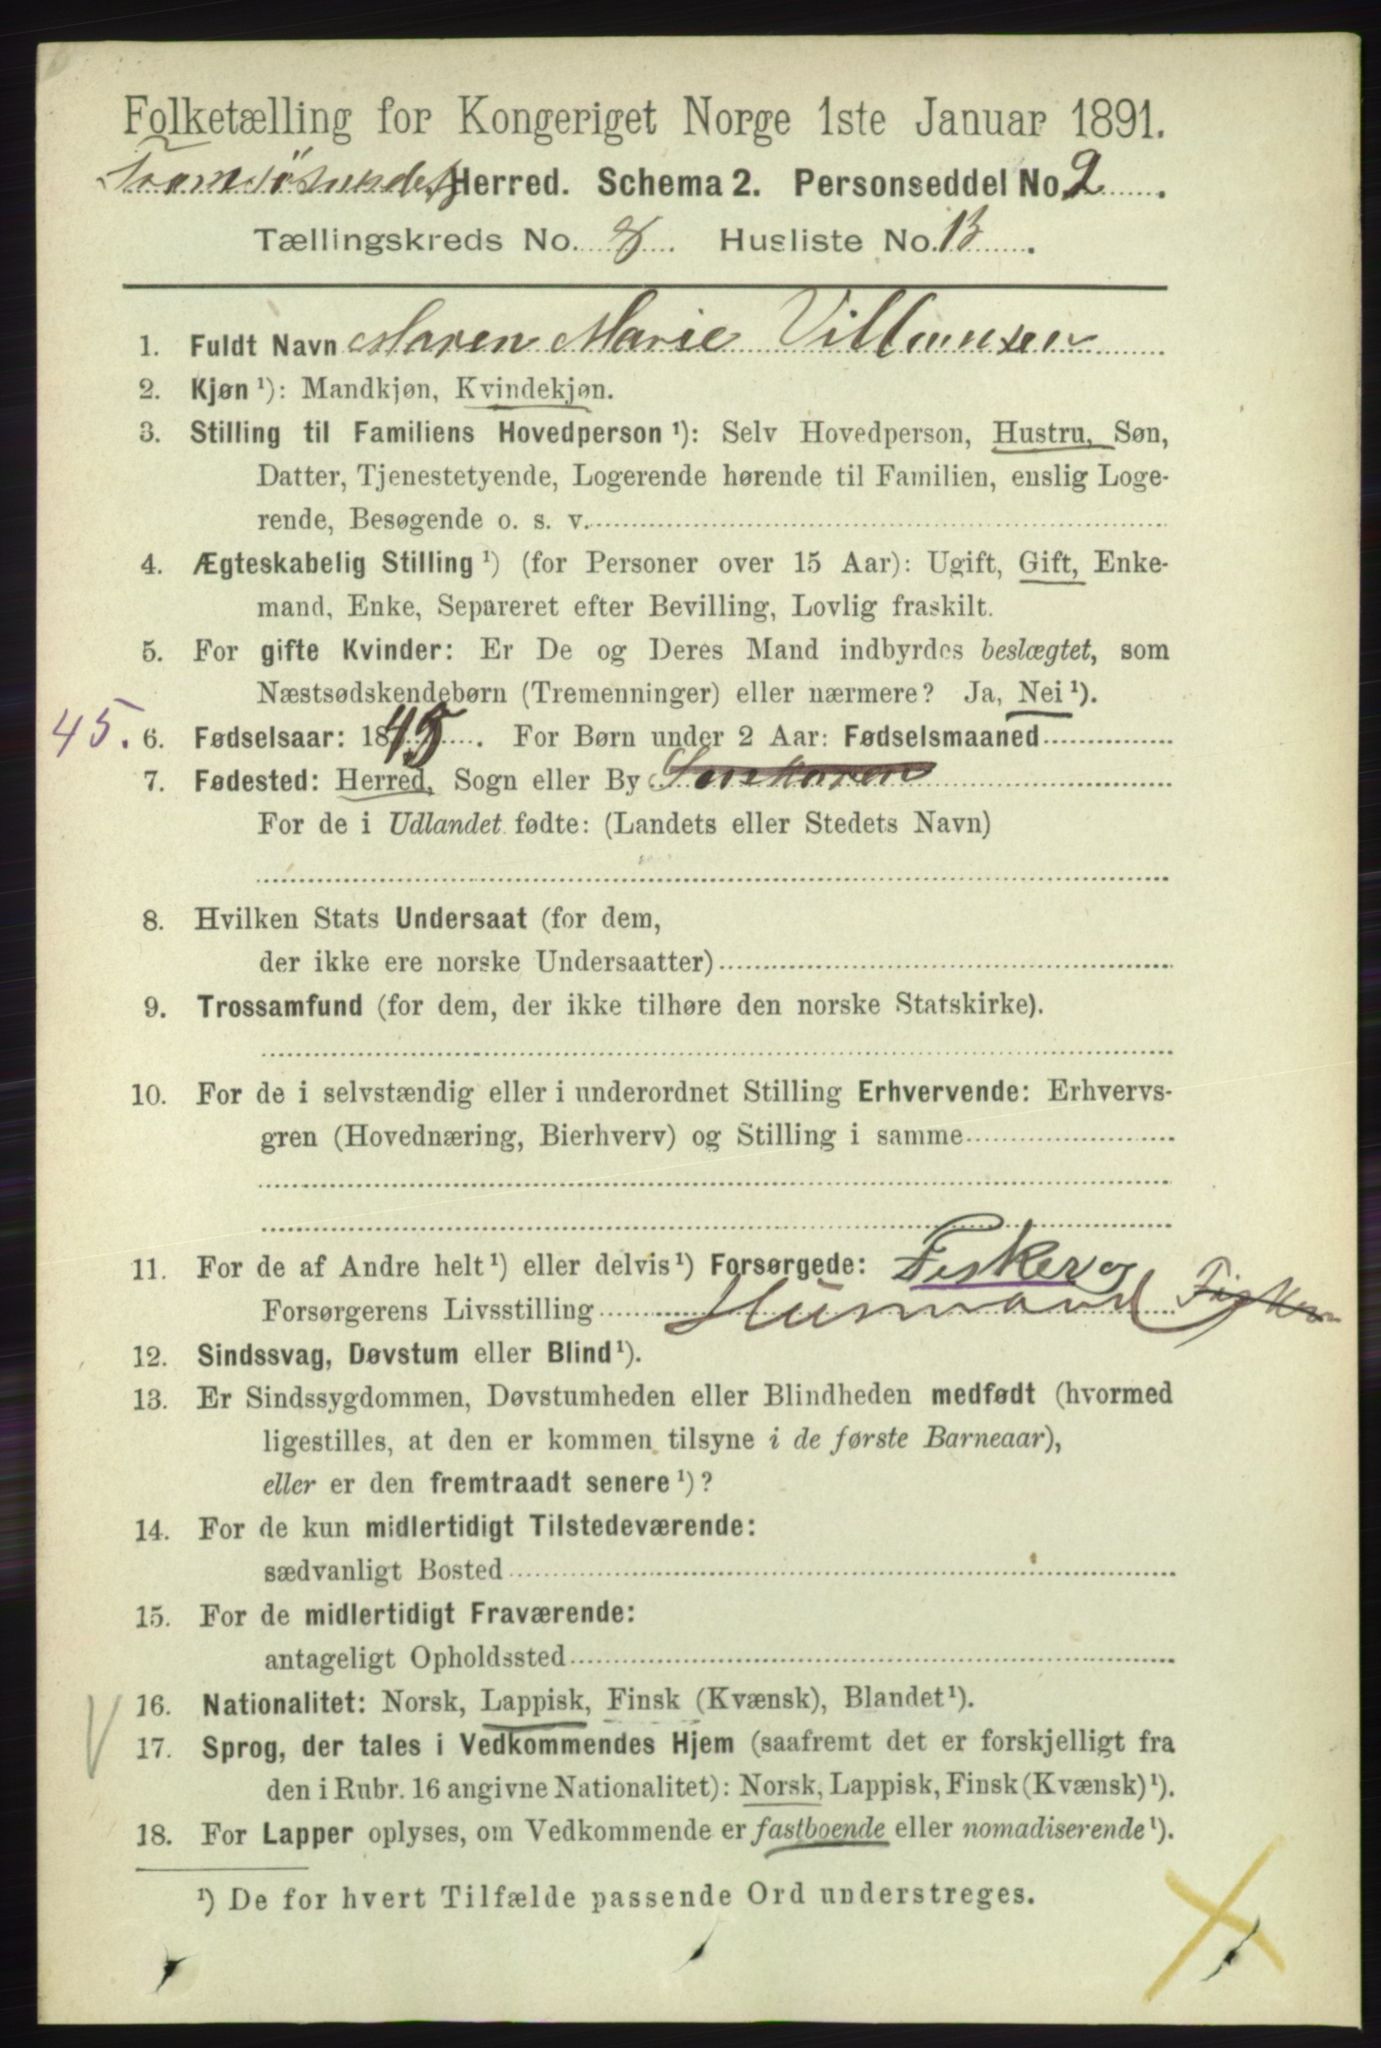 Folketælling for Kongeriget Norge 1ste Januar 1891.
Tromsösundets Herred. Schema 2. Personseddel No. 2.
Tællingskreds No. 8. Husliste No. 13.
1. Fuldt Navn Maren Marie Villumsen
2. Kjøn ¹): Mandkjøn, Kvindekjøn.
3. Stilling til Familiens Hovedperson ¹): Selv Hovedperson, Hustru, Søn,
Datter, Tjenestetyende, Logerende hørende til Familien, enslig Loge-
rende, Besøgende o. s. v.
4. Ægteskabelig Stilling ¹) (for Personer over 15 Aar): Ugift, Gift, Enke-
mand, Enke, Separeret efter Bevilling, Lovlig fraskilt.
5. For gifte Kvinder: Er De og Deres Mand indbyrdes beslægtet, som
Næstsødskendebørn (Tremenninger) eller nærmere? Ja, Nei ¹).
45. 6. Fødselsaar: 1845. For Børn under 2 Aar: Fødselsmaaned
7. Fødested: Herred, Sogn eller By
For de i Udlandet fødte: (Landets eller Stedets Navn)
8. Hvilken Stats Undersaat (for dem,
der ikke ere norske Undersaatter)
9. Trossamfund (for dem, der ikke tilhøre den norske Statskirke).
10. For de i selvstændig eller i underordnet Stilling Erhvervende: Erhvervs-
gren (Hovednæring, Bierhverv) og Stilling i samme
11. For de af Andre helt ¹) eller delvis ¹) Forsørgede: Fisker og
Forsørgerens Livsstilling Husmand Fisker
12. Sindssvag, Døvstum eller Blind ¹).
13. Er Sindssygdommen, Døvstumheden eller Blindheden medfødt (hvormed
ligestilles, at den er kommen tilsyne i de første Barneaar),
eller er den fremtraadt senere ¹)?
14. For de kun midlertidigt Tilstedeværende:
sædvanligt Bosted
15. For de midlertidigt Fraværende:
antageligt Opholdssted
16. Nationalitet: Norsk, Lappisk, Finsk (Kvænsk), Blandet ¹).
17. Sprog, der tales i Vedkommendes Hjem (saafremt det er forskjelligt fra
den i Rubr. 16 angivne Nationalitet): Norsk, Lappisk, Finsk (Kvænsk) ¹).
18. For Lapper oplyses, om Vedkommende er fastboende eller nomadiserende ¹).
¹) De for hvert Tilfælde passende Ord understreges.